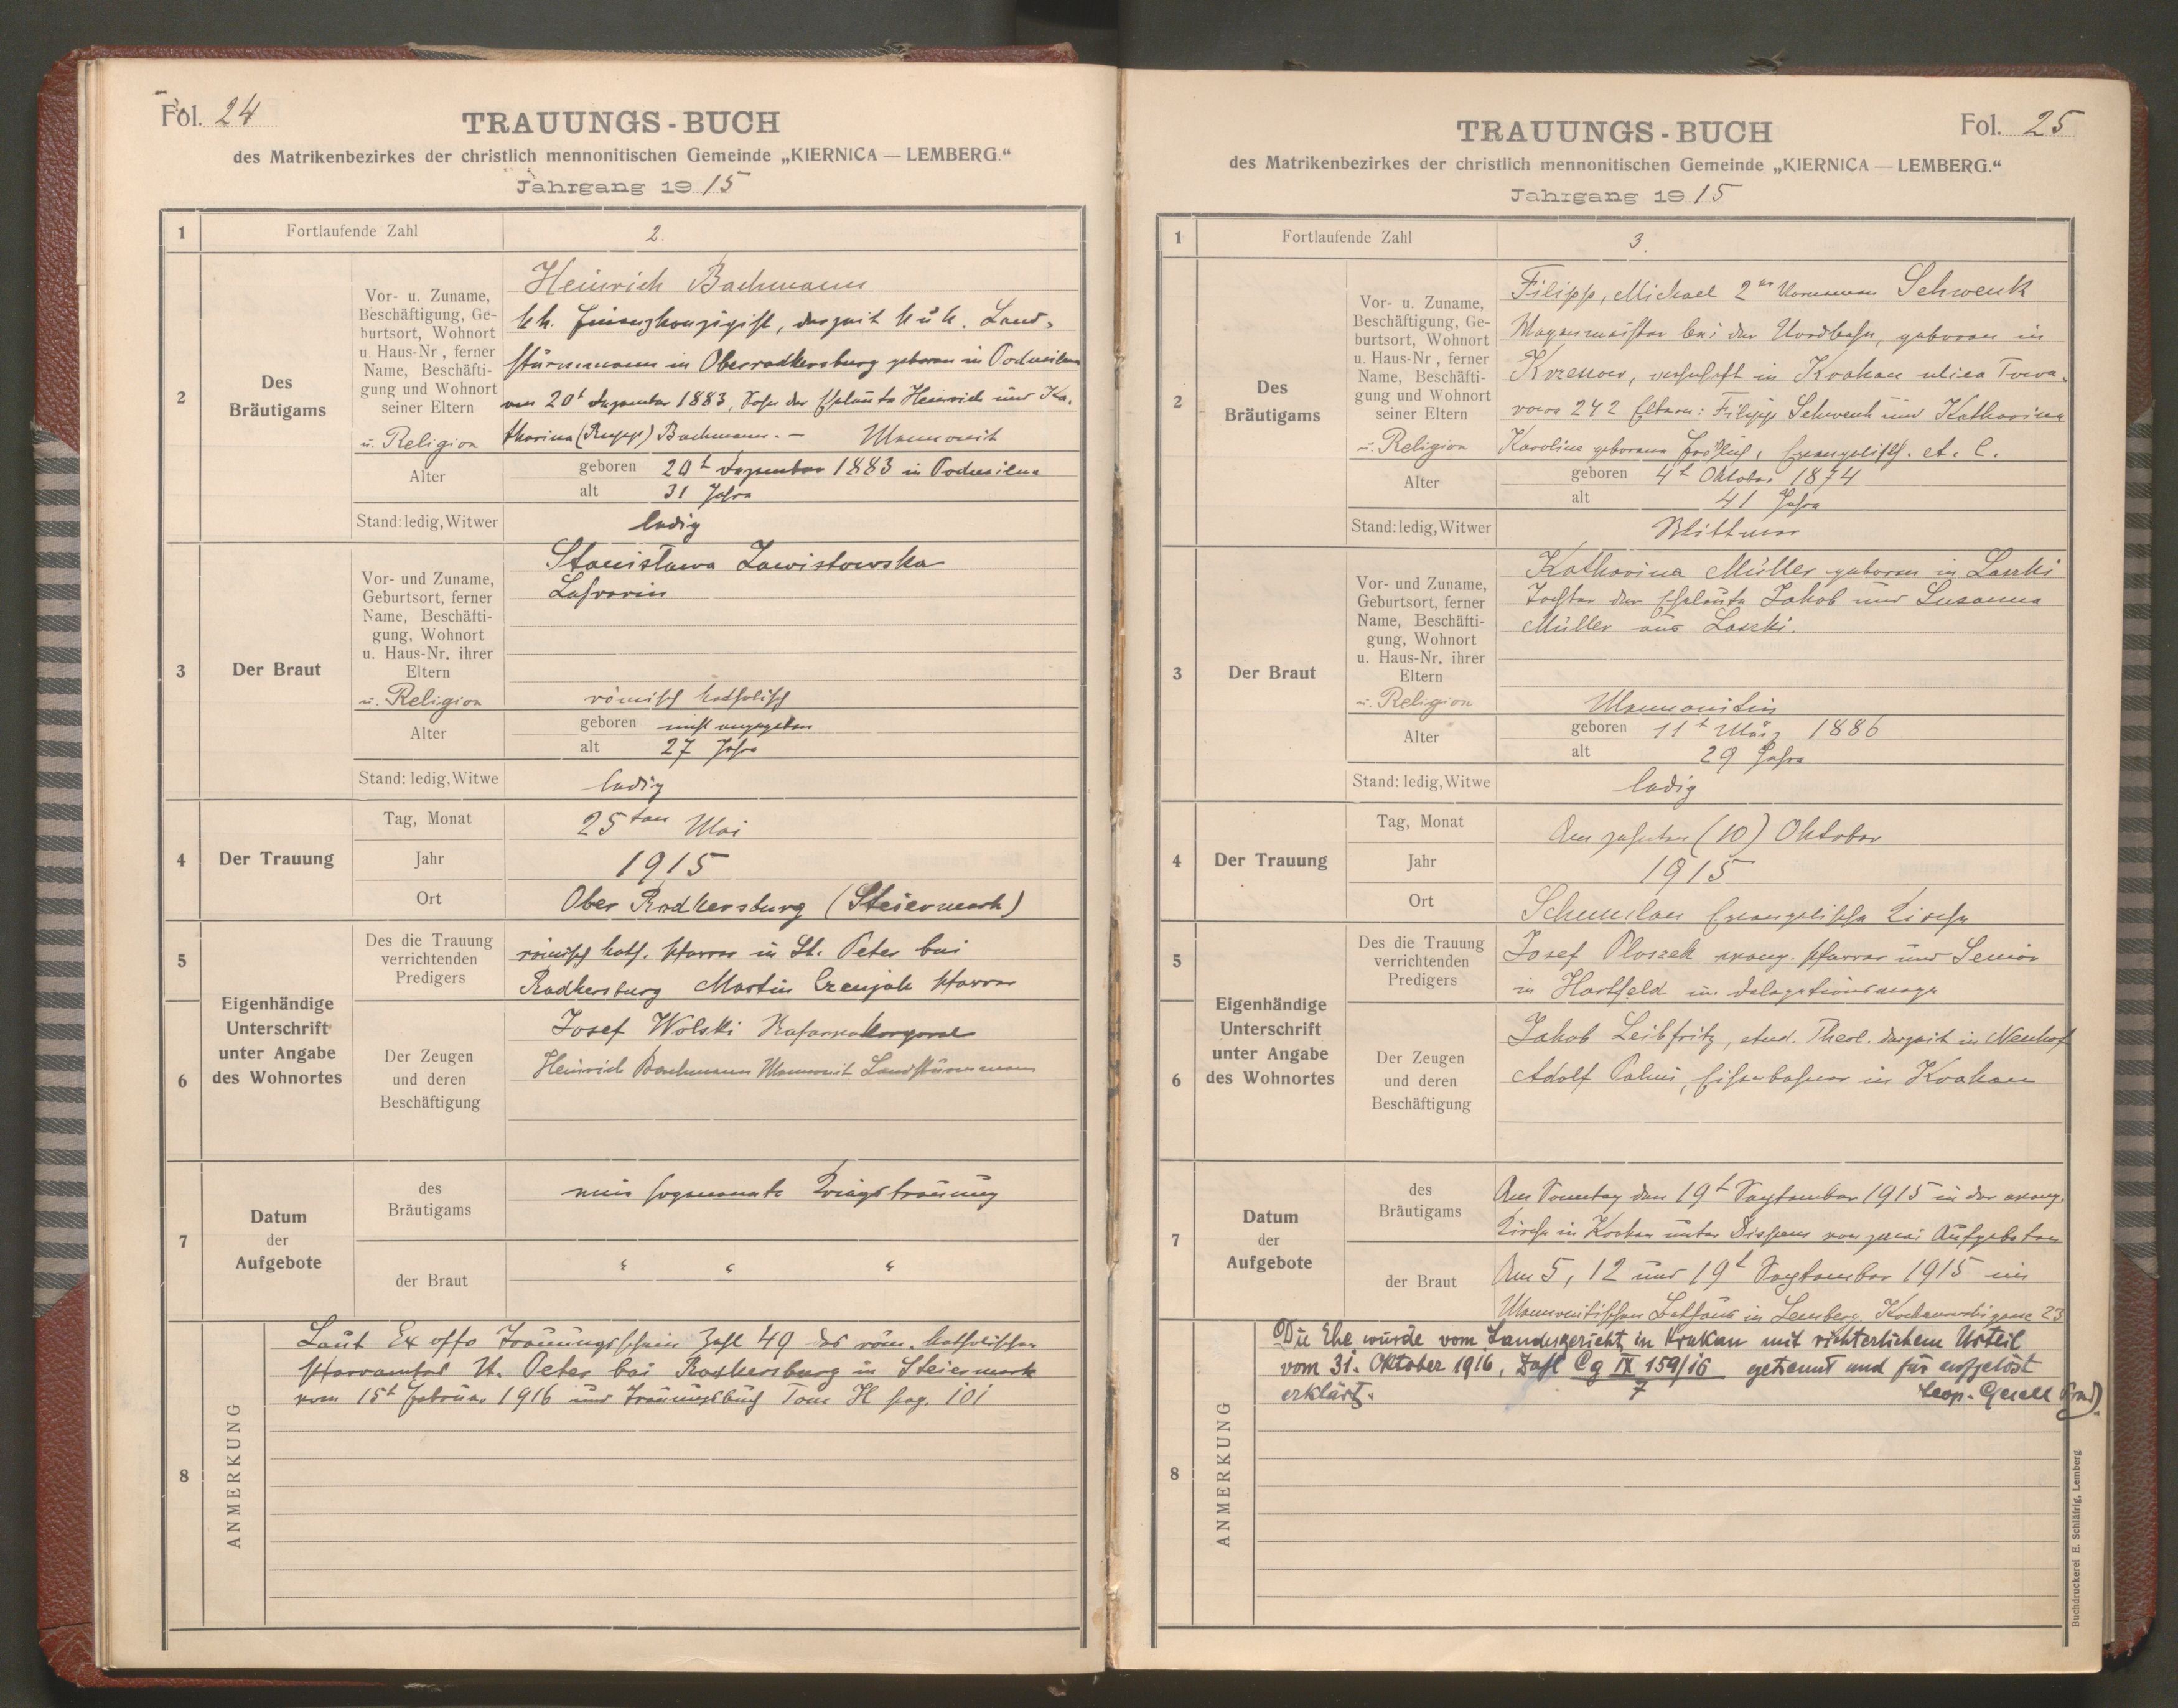 Fol. 24
TRAUUNGS-BUCH
des Matrikenbezirkes der christlich mennonitischen Gemeinde „KIERNICA — LEMBERG.“
Jahrgang 1915
1 Fortlaufende Zahl 2.
2 Des Bräutigams
Vor- u. Zuname,
Beschäftigung, Ge-
burtsort, Wohnort
u. Haus-Nr, ferner
Name, Beschäfti-
gung und Wohnort
seiner Eltern
u. Religion
Heinrich Bachmann
kk. Finanzkonzipist, derzeit k u k. Land-
sturmmann in Oberradkersburg geboren in Podusilna
am 20t Dezember 1883, Sohn der Eheleute Heinrich und Ka-
tharina (Rupp) Bachmann. — Mennonit
Alter
geboren 20t Dezember 1883 in Podusilna
alt 31 Jahre
Stand: ledig, Witwer ledig
3 Der Braut
Vor- und Zuname,
Geburtsort, ferner
Name, Beschäfti-
gung, Wohnort
u. Haus-Nr. ihrer
Eltern
u. Religion
Stanisława Zawistowska
Lehrerin
römisch katholisch
Alter
geboren nicht angegeben
alt 27 Jahre
Stand: ledig, Witwe ledig
4 Der Trauung
Tag, Monat 25ten Mai
Jahr 1915
Ort Ober Radkersburg (Steiermark)
Eigenhändige
Unterschrift
unter Angabe
des Wohnortes
5 Des die Trauung
verrichtenden
Predigers
römisch kath. Pfarrer in St. Peter bei
Radkersburg Martin Crenjak Pfarrer
6 Der Zeugen
und deren
Beschäftigung
Josef Wolski
Heinrich Bachmann Mennonit Landsturmmann
7 Datum
der
Aufgebote
des
Bräutigams
eine sogenannte Kriegstrauung
der Braut
“ “ “
8 ANMERKUNG
Laut Ex offo Trauungsschein Zahl 49 des röm. katholischen
Pfarramtes St. Peter bei Radkersburg in Steiermark
vom 15t Februar 1916 und Trauungsbuch Tom II pag. 101
Fol. 25
TRAUUNGS-BUCH
des Matrikenbezirkes der christlich mennonitischen Gemeinde „KIERNICA — LEMBERG.“
Jahrgang 1915
1 Fortlaufende Zahl 3.
2 Des Bräutigams
Vor- u. Zuname,
Beschäftigung, Ge-
burtsort, Wohnort
u. Haus-Nr, ferner
Name, Beschäfti-
gung und Wohnort
seiner Eltern
u. Religion
Filipp, Michael 2er Vorname Schwenk
Wagenmeister bei der Nordbahn, geboren in
Krzenow, wohnhaft in Krakau ulica Towa-
rowa 242 Eltern: Filipp Schwenk und Katharina
Karoline geborene Fröhlich, Evangelisch. A. C.
Alter
geboren 4t Oktober 1874
alt 41 Jahre
Stand: ledig, Witwer Wittwer
3 Der Braut
Vor- und Zuname,
Geburtsort, ferner
Name, Beschäfti-
gung, Wohnort
u. Haus-Nr. ihrer
Eltern
u. Religion
Katharina Müller geboren in Laszki
Tochter der Eheleute Jakob und Susanna
Müller aus Laszki.
Mennonitin
Alter
geboren 11t März 1886
alt 29 Jahre
Stand: ledig, Witwe ledig
4 Der Trauung
Tag, Monat Am zehnten (10) Oktober
Jahr 1915
Ort Schumlau Evangelische Kirche
Eigenhändige
Unterschrift
unter Angabe
des Wohnortes
5 Des die Trauung
verrichtenden
Predigers
Josef Ploszek evang. Pfarrer und Senior
in Hartfeld im Delegationswege
6 Der Zeugen
und deren
Beschäftigung
Jakob Leibfritz, stud. Theol. derzeit in Neuhof
Adolf Palmi, Eisenbahner in Krakau
7 Datum
der
Aufgebote
des
Bräutigams
Am Sonntag den 19t September 1915 in der evang.
Kirche in Krakau unter Dispens von zwei Aufgeboten
der Braut
Am 5, 12 und 19t September 1915 im
Mennonitischen Bethaus in Lemberg Kochanowskigasse 23
8 ANMERKUNG
Die Ehe wurde vom Landesgericht in Krakau mit richterlichem Urteil
vom 31. Oktober 1916, Zahl Cg IX 159/16 getrennt und für aufgelöst
7
erklärt. Leop. Gesell
Buchdruckerei E. Schläfrig, Lemberg